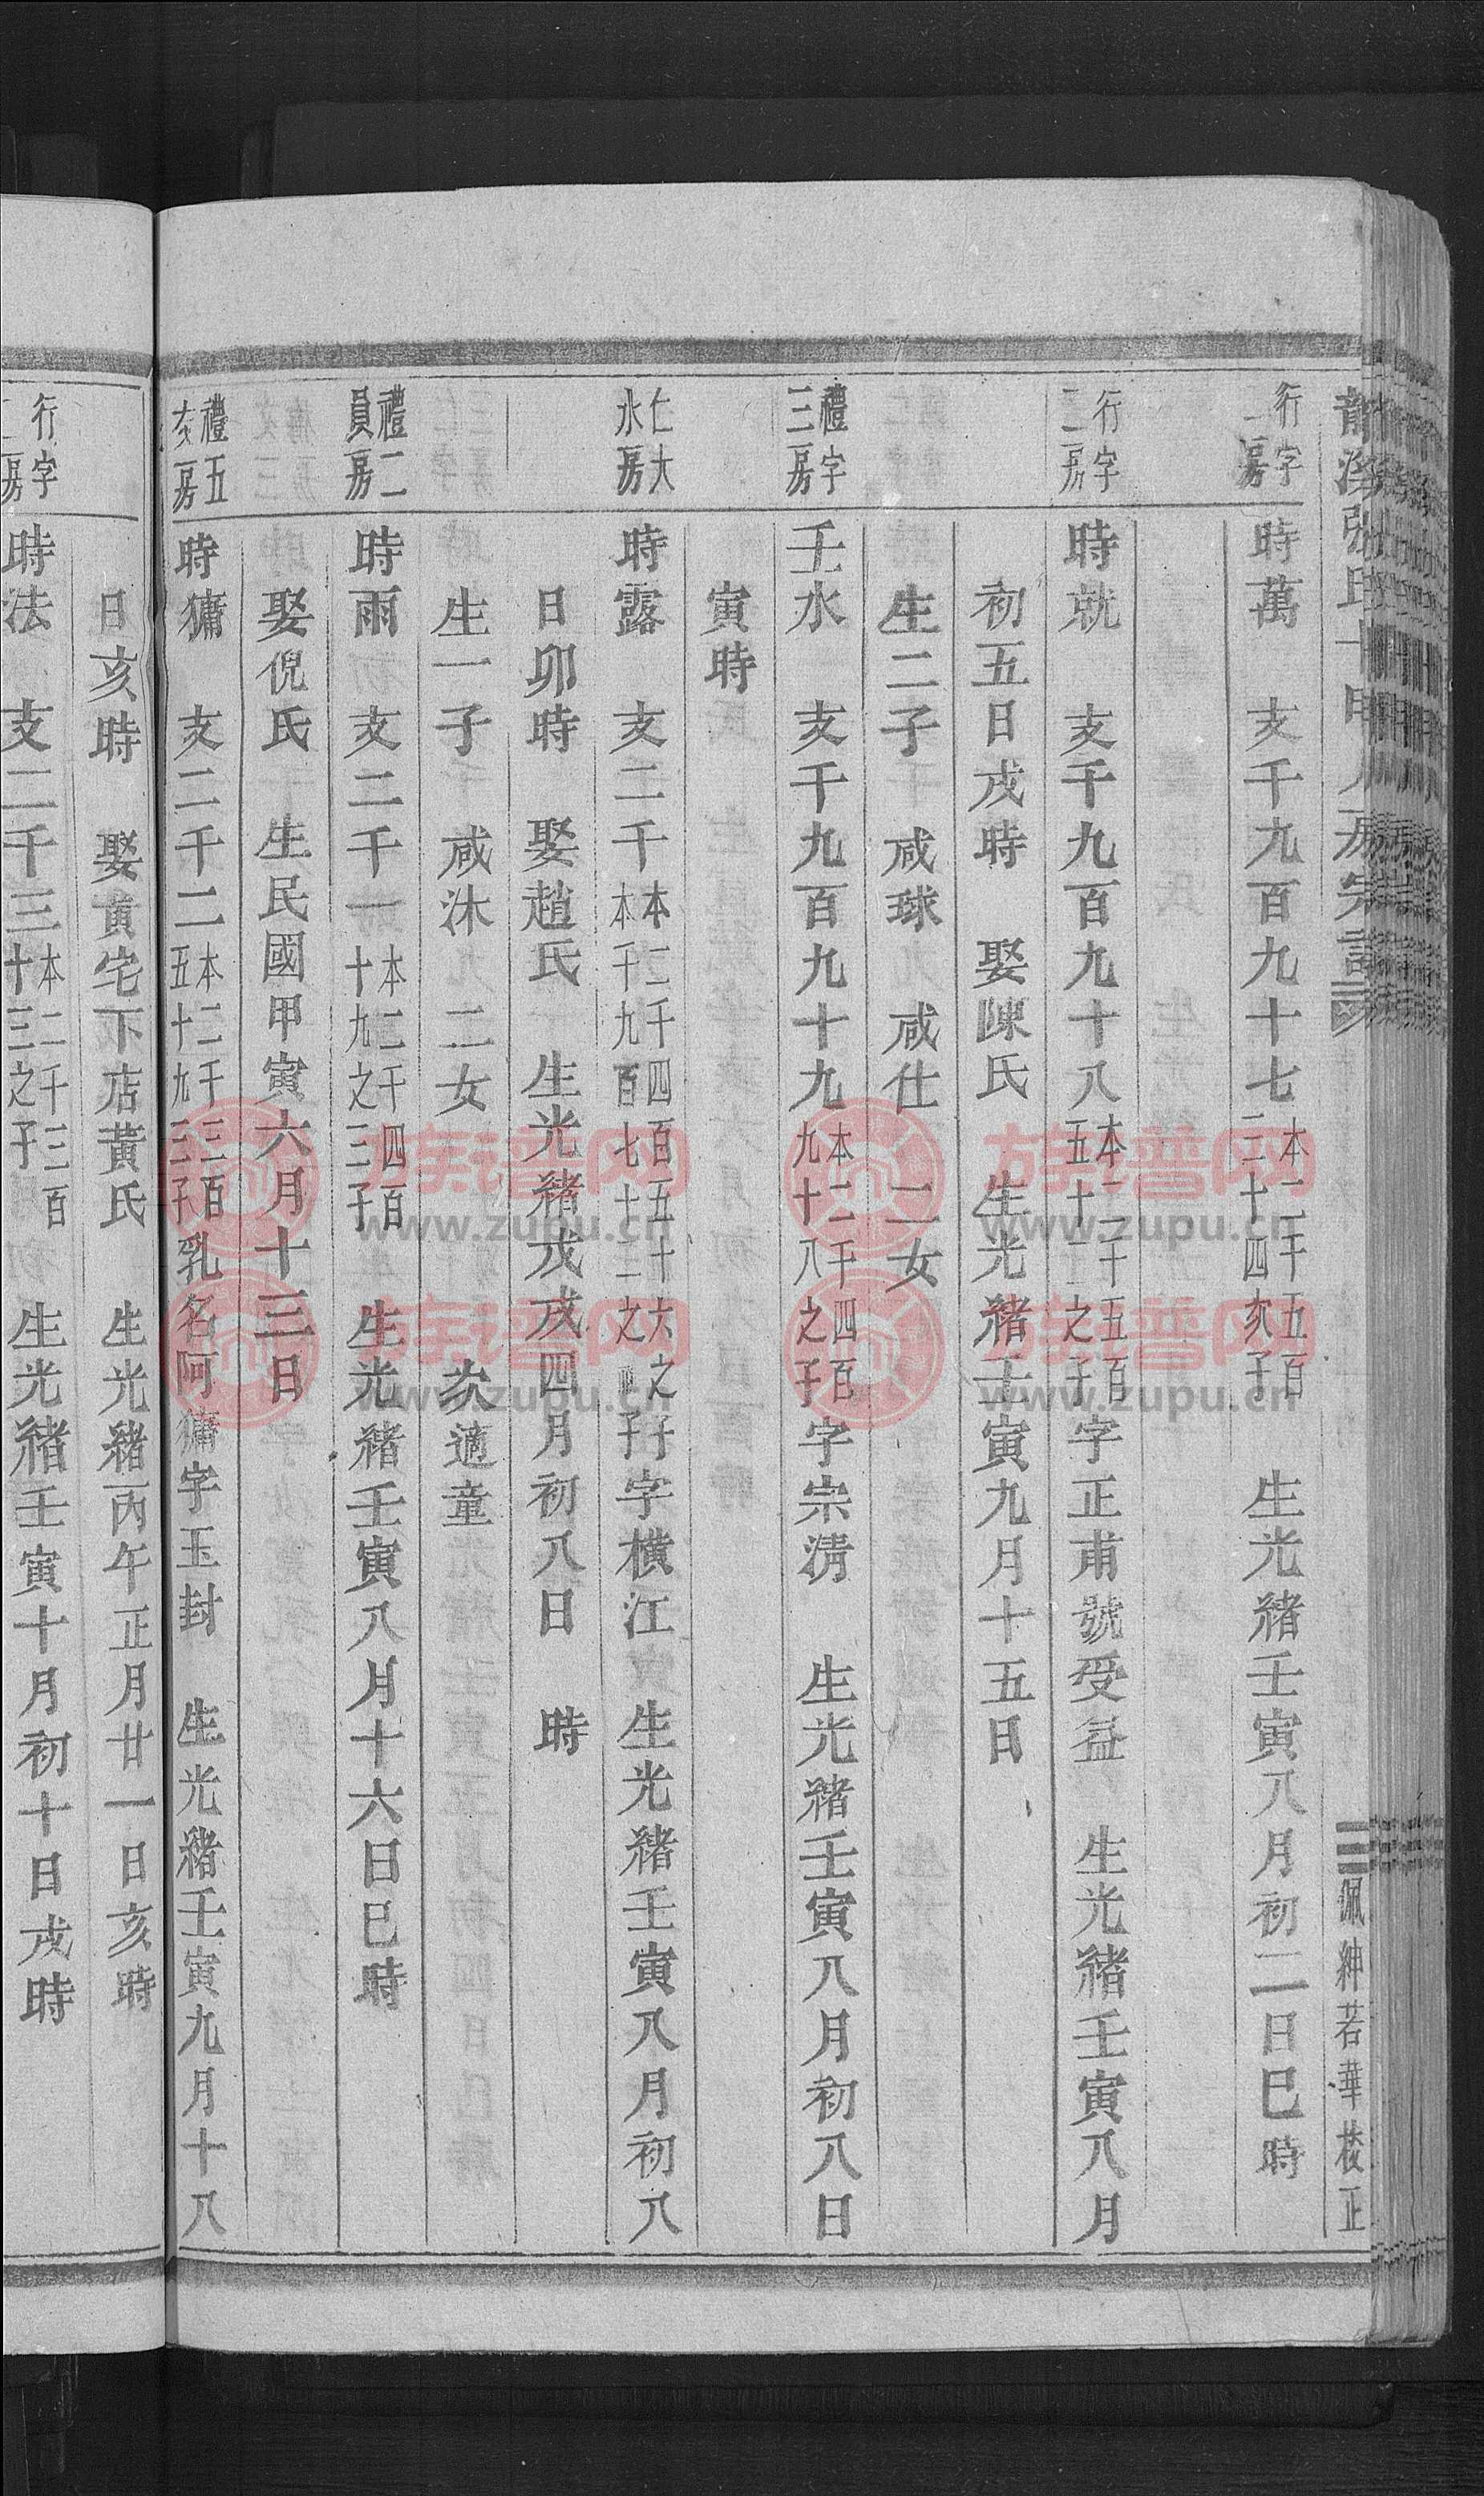 張氏十甲八房宗譜
佩紳若華校正
行字
一房
時萬 支千九百九十七本二千五百二十四亥子 生光緒壬寅八月初二日巳時
行字
二房
時就 支千九百九十八本二千五百五十二之子字正甫號受益 生光緒壬寅八月
初五日戌時 娶陳氏 生光緒壬寅九月十五日
生二子 咸球 咸仕 二女
禮字
三房
壬水 支千九百九十九本二千四百九十八之子字崇淸 生光緒壬寅八月初八日
寅時
仁大
水房
時露 支二千本二千四百五十六之子本千九百七十二之子字橫江 生光緒壬寅八月初八
日卯時 娶趙氏 生光緒戊戌四月初八日 時
生一子 咸沐 二女 次適童
禮二
員房
時雨 支二千一本二千四百十九之三子 生光緒壬寅八月十六日巳時
娶倪氏 生民國甲寅六月十三日
禮五
亥房
時獢 支二千二本二千三百五十九三子乳名阿獢字玉封 生光緒壬寅九月十八
日亥時 娶黃宅下店黃氏 生光緒丙午正月廿一日亥時
行字
二房
時法 支二千三本二千三百十三之子 生光緒壬寅十月初十日戌時
族谱网
www.zupu.cn
族谱网
www.zupu.cn
族谱网
www.zupu.cn
族谱网
www.zupu.cn